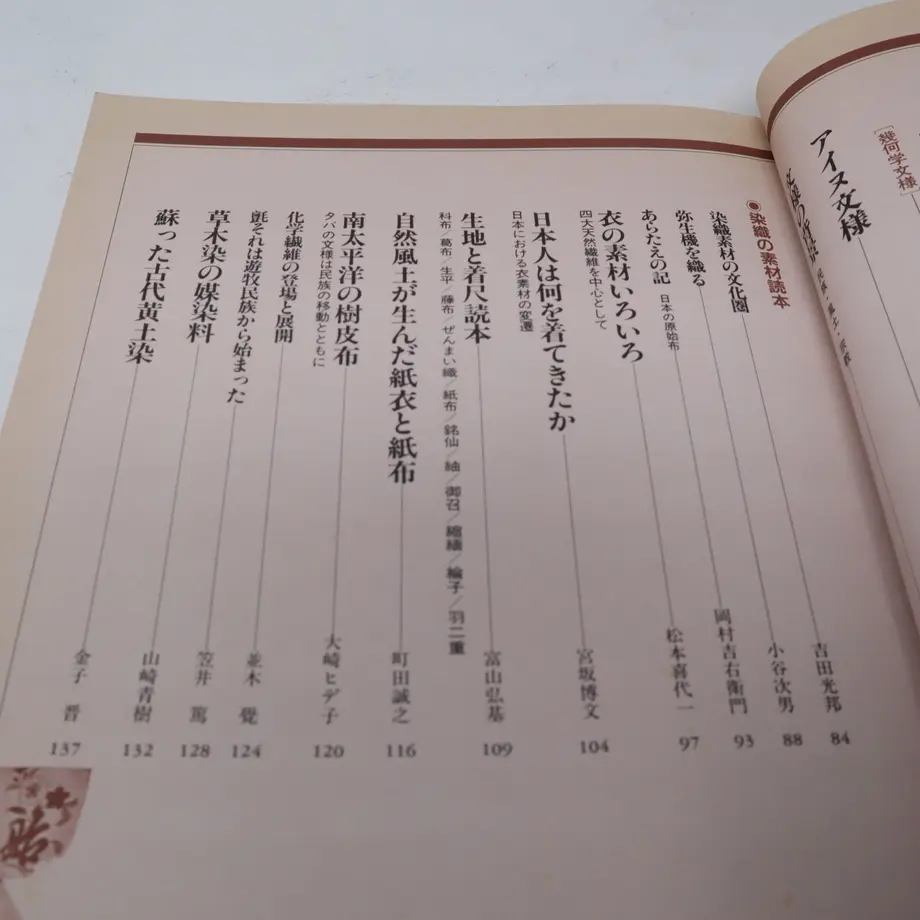 「幾何学文様」
アイヌ文様
●染織の素材読本
染織素材の文化圏 吉田光邦 84
弥生機を織る 小谷次男 88
あらたえの記 日本の原始布 岡村吉右衛門 93
衣の素材いろいろ 松本喜代一 97
四大天然繊維を中心として
日本人は何を着てきたか 宮坂博文 104
日本における衣素材の変遷
生地と着尺読本 富山弘基 109
科布/葛布/生平/藤布/ぜんまい織/紙布/銘仙/紬/御召/縮緬/綸子/羽二重
自然風土が生んだ紙衣と紙布 町田誠之 116
南太平洋の樹皮布 大崎ヒデ子 120
タパの文様は民族の移動とともに
化学繊維の登場と展開 並木 覺 124
氈それは遊牧民族から始まった 笠井 篤 128
草木染の媒染料 山崎青樹 132
蘇った古代黄土染 金子 晋 137